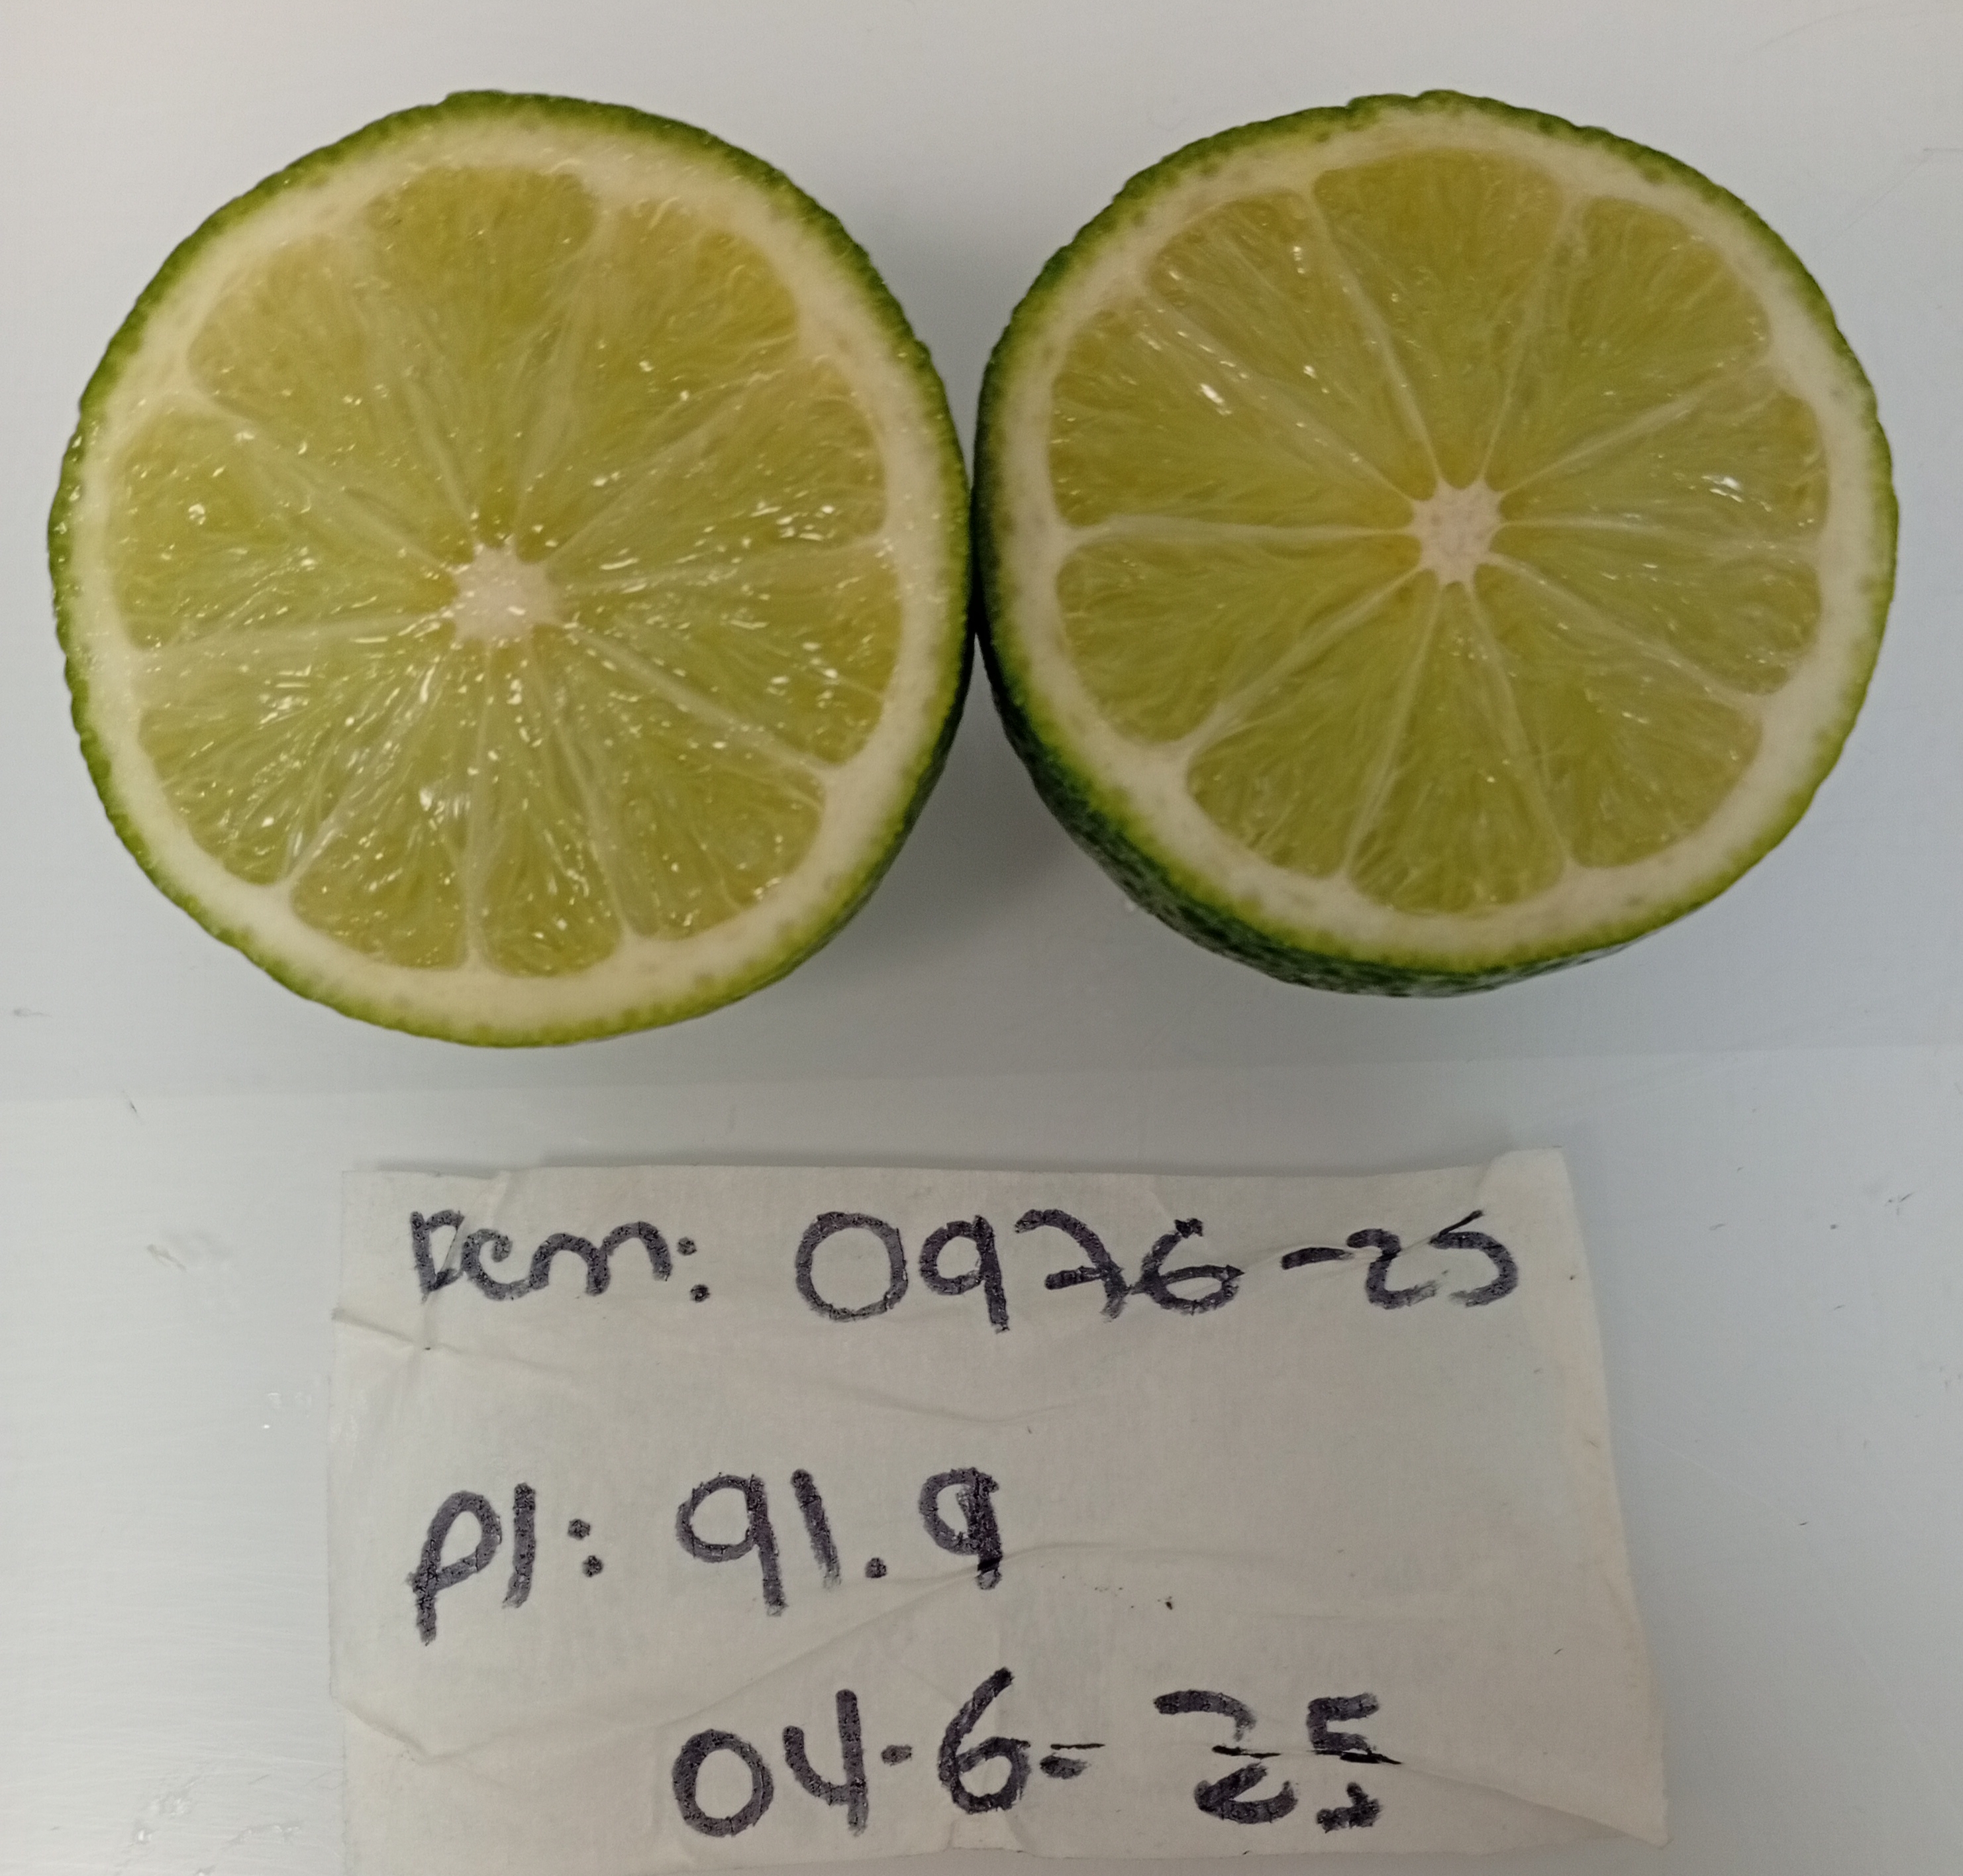 Rcm: 0976-25
Pl: 91.9
04-6-25